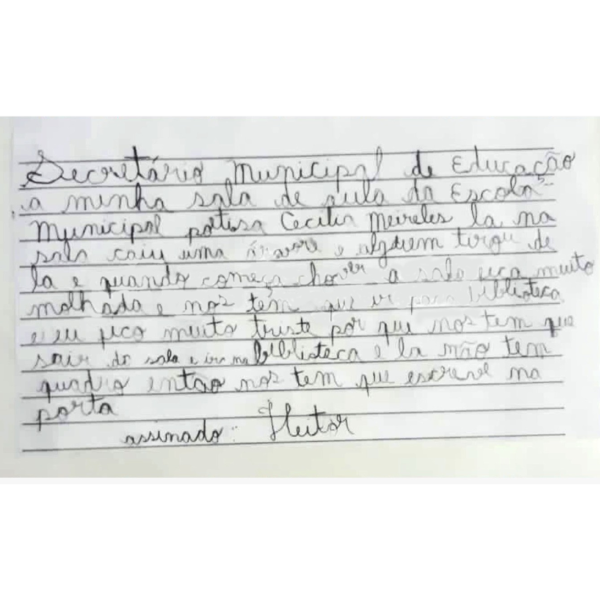 Secretário Municipal de Educação
a minha sala de aula da Escola
Municipal poetisa Cecilia meireles la na
sala caiu uma arvore e alguem tirou de
la e quando começa chover a sala fica muito
molhada e nos tem que ir para biblioteca
e eu fico muito triste por que nos tem que
sair da sala e ir na biblioteca e la não tem
quadro entao nos tem que escreve na
porta
assinado: Heitor